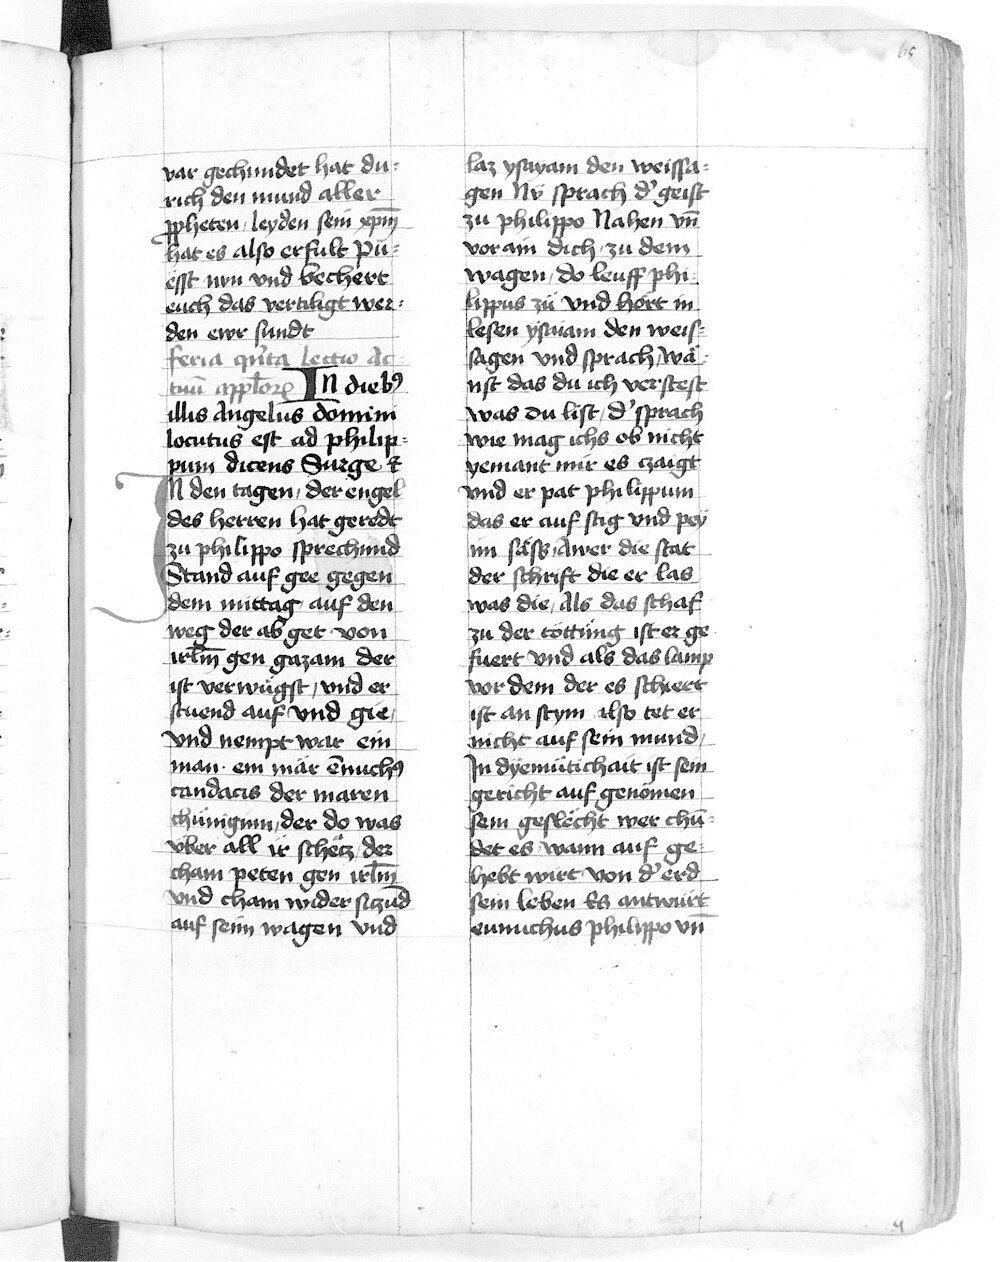 65
var gechundet hat du-
rich den mund aller
ꝓpheten / leyden sein xp̄m
hat es also erfult Pü-
esst nvn vnd bechert
euch das vertiligt wer-
den ewr sundt
feria qͥnta lectio Ac
tuū apl̄orꝝ IN diebꝯ
illis Angelus domini
locutus est ad philip-
pum dicens Surge ⁊
IN den tagen / der engel
des herren hat geredt
zu philippo sprechund
Stand auf gee gegen
dem mittag auf den
weg der ab get von
irl̄m gen gazam der
ist verwügst / vnd er
stuend auf vnd gie /
vnd nempt war ein
man · ein mär ēnuchꝯ
candacis der maren
chüniginn / der do was
vber all ir schëcz / der
cham peten gen irl̄m
vnd cham wider siczūd
auf seim wagen vnd
laz ysayam den weissa-
gen Nv̈ sprach d' geist
zu philippo Nahen vn̄
vor ain dich / zu dem
wagen / do leuff phi-
lippus zü vnd hört in
lesen ysaiam den weis-
sagen vnd sprach / wā
nst das du ich verstest
was du list / d' sprach
wie mag ichs ob nicht
yemant mir es czaigt
vnd er pat philippum
das er auf stig vnd pey
im säss / Awer die stat
der schrift die er las
was die / Als das schaf
zu der töttüng ist er ge
fuert vnd als das lamp
vor dem der es schiert
ist an stym also tet er
nicht auf sein mund /
In dyemütichait ist sein
gericht auf genōmen
sein geslëcht wer chü-
det es / wann auf ge-
hebt wirt von d' erd
sein leben Es antwürt
eunuchus philippo vn̄